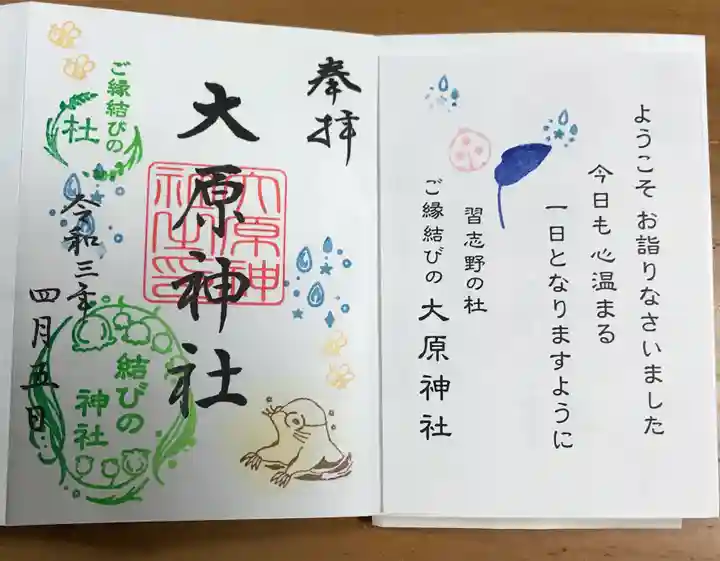 ようこそ お詣りなさいました
今日も 心温まる
一日となりますように
習志野の杜
ご縁結びの 大原神社
奉拝
大原神社
大原神
社之印
ご縁結びの
杜
令和三年
四月五日
結びの
神社